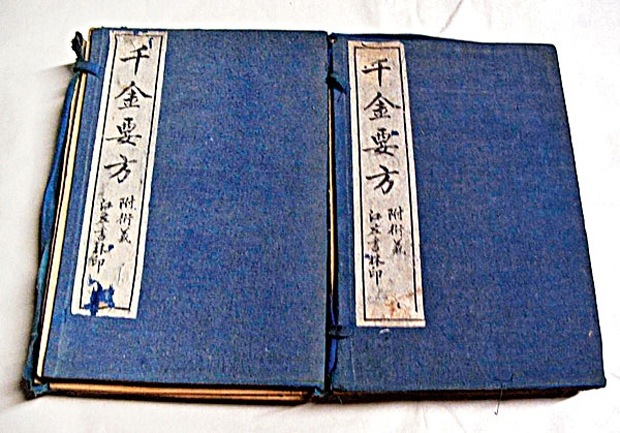 千金要方
附衍義
江左書林印
千金要方
附衍義
江左書林印